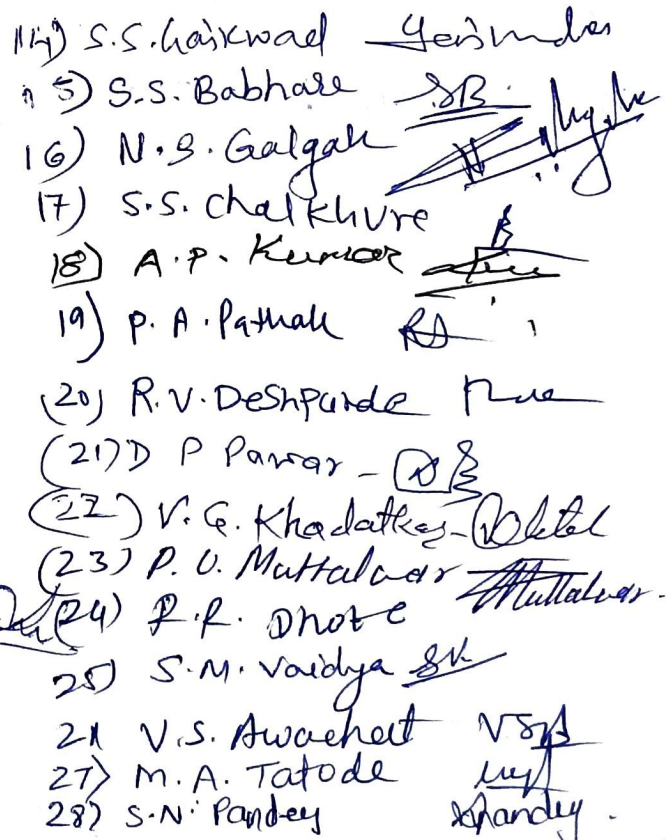 14) S.S. Gaikwad
15) S.S. Babhare SB
16) N.S. Galgali
17) S.S. Chalkhure
18) A.P. Kumar
19) P.A. Pathak
(20) R.V. Deshpande
(21) D P Pawar -
(22) V.G. Khadatkar -
(23) P. U. Muttalwar Muttalwar.
(24) R.R. Dhote
25) S.M. Vaidya
V.S. Awachat
27) M.A. Tatode
28) S.N. Pandey Pandey.